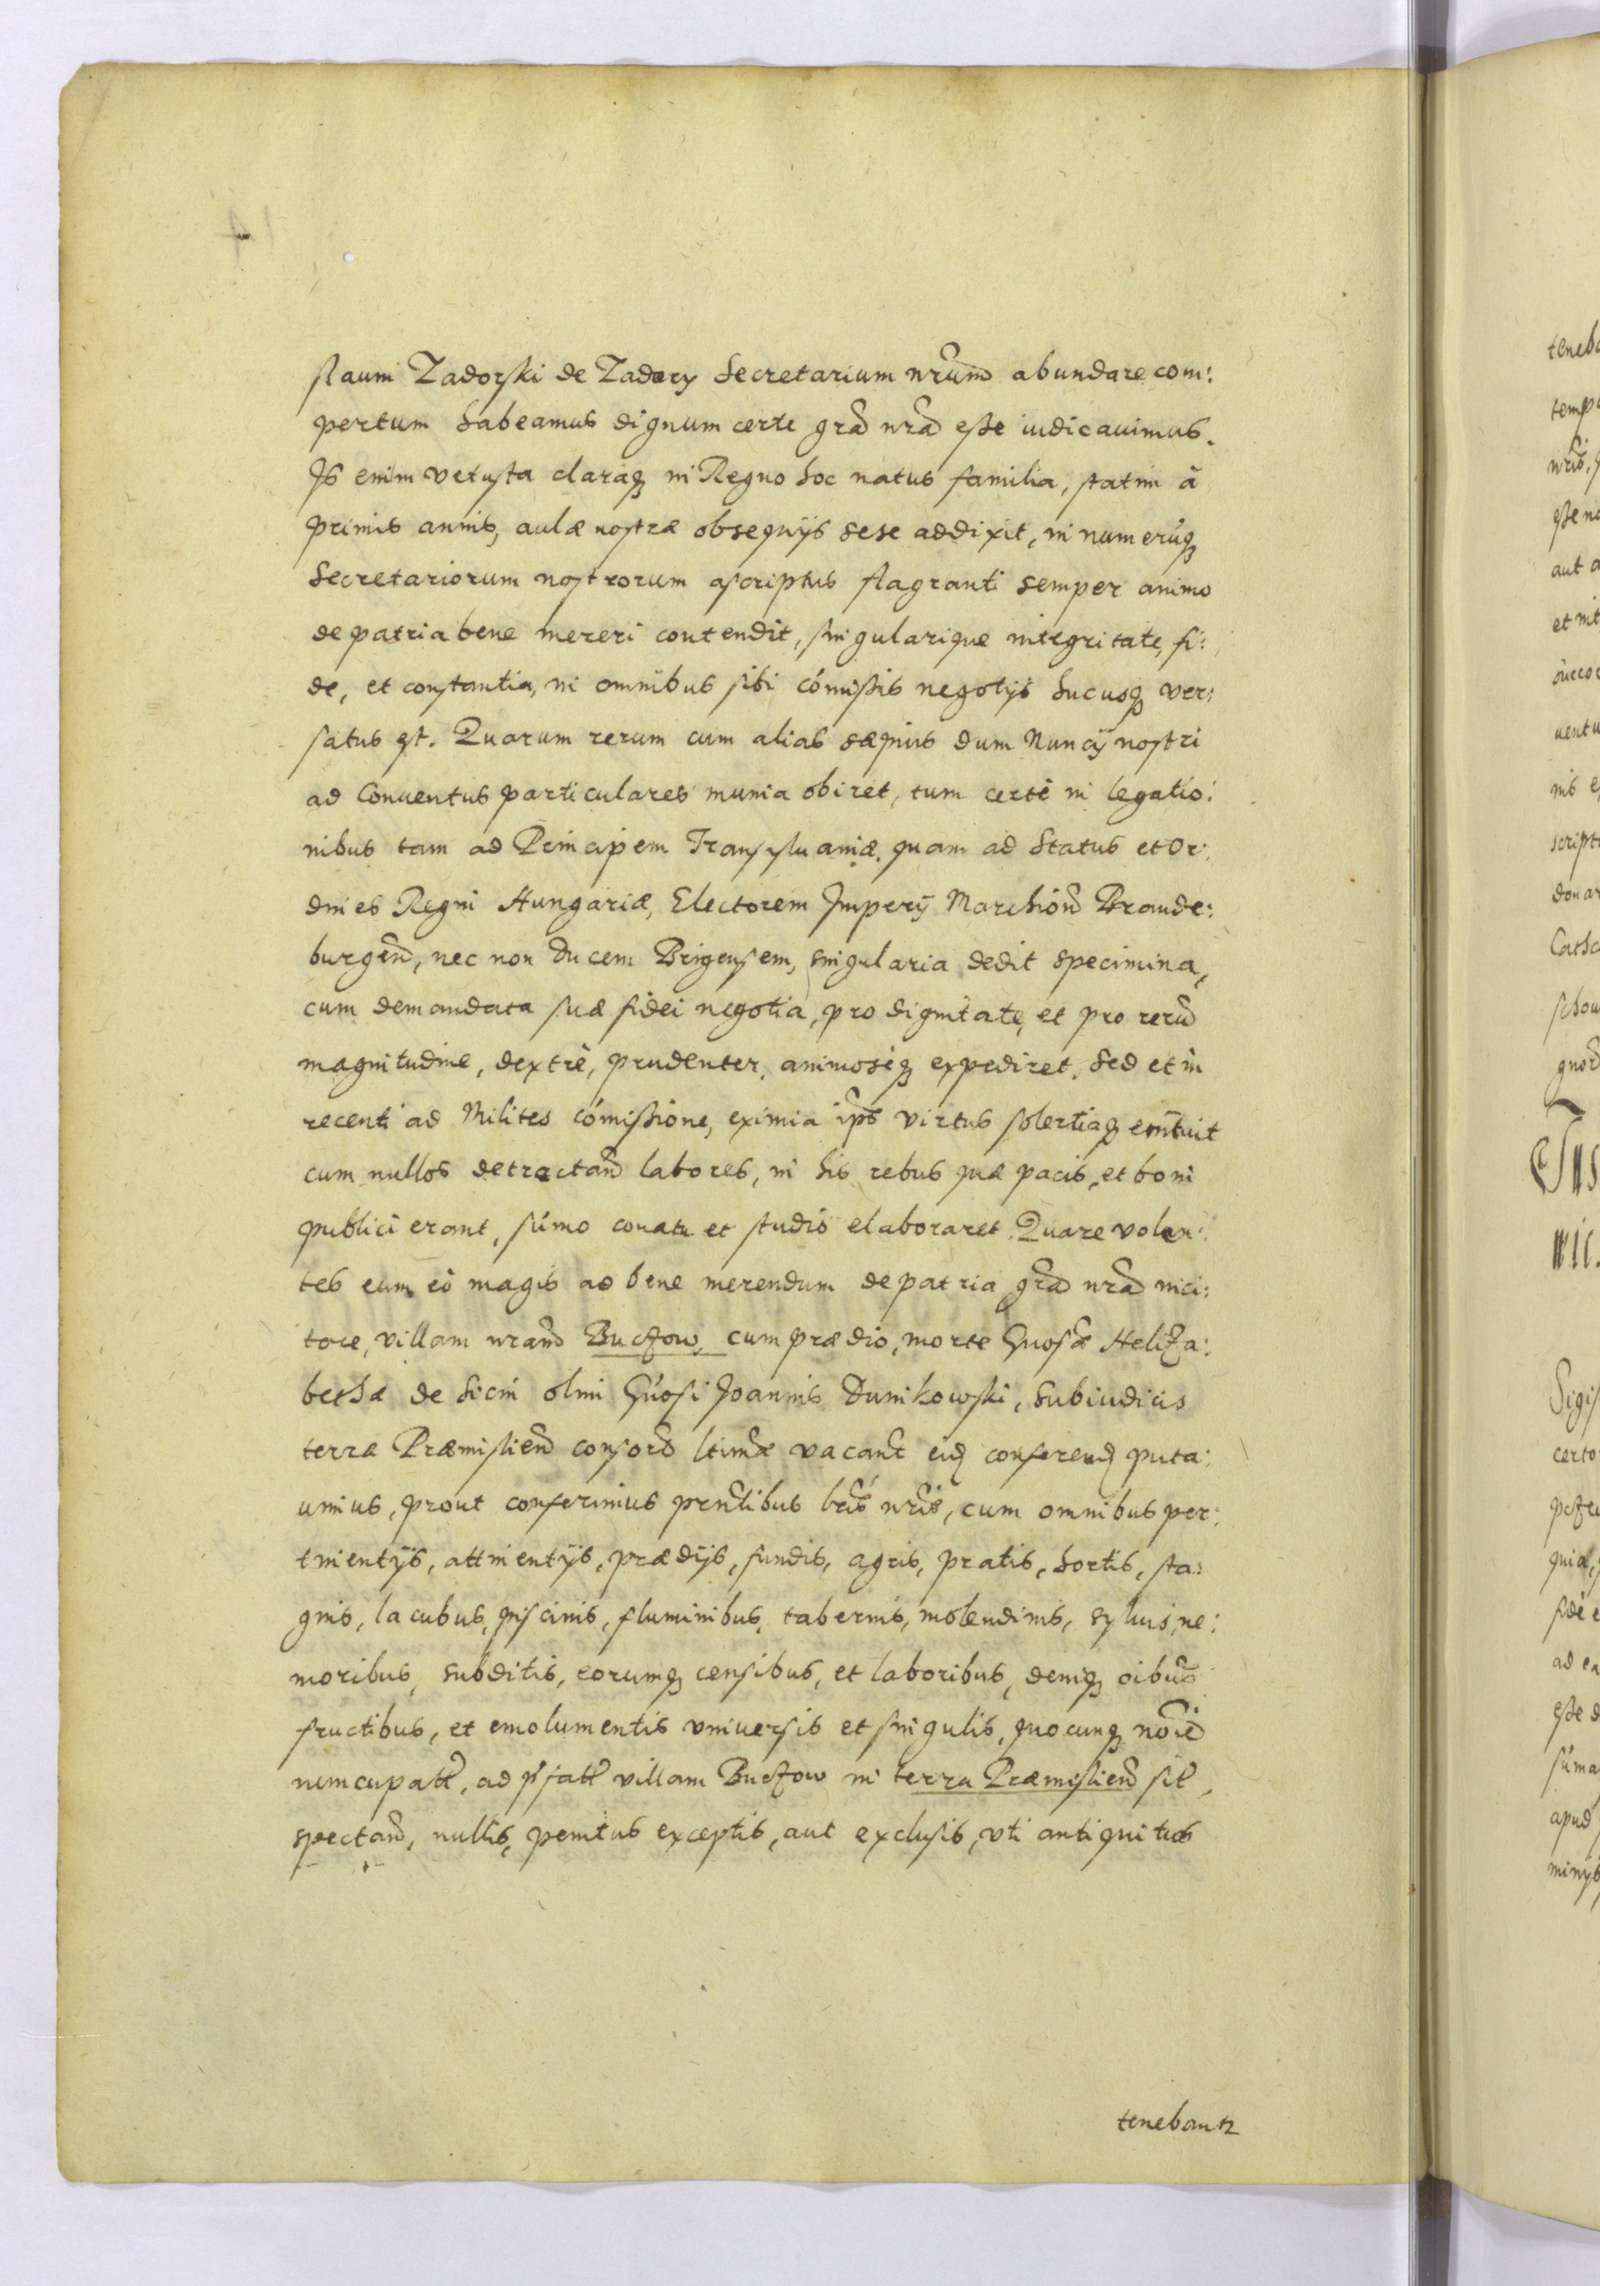 slaum Zadorski de Zadory Secretarium nrum abundare com:
pertum habeamus dignum certe gra nra esse iudicauimus.
Is enim vetusta claraq in Regno hoc natus familia, statim à
primis annis, aulæ nostræ obsequijs sese addixit, in numerúq
Secretariorum nostrorum ascriptus flagranti semper animo
de patria bene mereri contendit, singularique integritate, fi:
de, et constantia, in omnibus sibi cómissis negotijs hucusq ver:
satus est. Quarum rerum cum alias sæpius dum Nuncij nostri
ad Conuentus particulares munia obiret, tum certè in legatio:
nibus tam ad Principem Transyluaniæ, quam ad Status et Or:
dines Regni Hungariæ, Electorem Imperij Marchion Brande:
burgen, nec non Ducem Brigensem, singularia dedit specimina,
cum demandata suæ fidei negotia, pro dignitate, et pro reru
magnitudine, dextrè, prudenter, animoséq expediret. Sed et in
recenti ad Milites cómissione, eximia ips virtus solertiaq emituit
cum nullos detractan labores, in his rebus quæ pacis, et boni
publici erant, súmo conatu et studio elaboraret. Quare volen:
tes eum eò magis ad bene merendum de patria gra nra inci:
tare, villam nram Buczow, cum prædio, morte Gnosæ Heliza:
bethæ de Sicin olim Gnosi Joannis Dunikowski, Subiudicis
terræ Præmislien consor ltimæ vacant eid conferend puta:
uimus, prout conferimus prntibus lris nris, cum omnibus per:
tinentijs, attinentijs, prædijs, fundis, agris, pratis, hortis, sta:
gnis, lacubus, piscinis, fluminibus, tabernis, molendinis, syluis, ne:
moribus, subditis, eorumq censibus, et laboribus, deniq oibus
fructibus, et emolumentis vniuersis et singulis, quocunq noie
nuncupat, ad pfat villam Buczow in terra Præmislien sit,
spectan, nullis, penitus exceptis, aut exclusis, vti antiquitus
tenebantr
teneb
temp
nris,
esse n
aut a
et int
uentu
nis e
script
donar
Cath
Sigis
certo
quia,
fidé e
ad ea
esse d
súma
apud
minijs